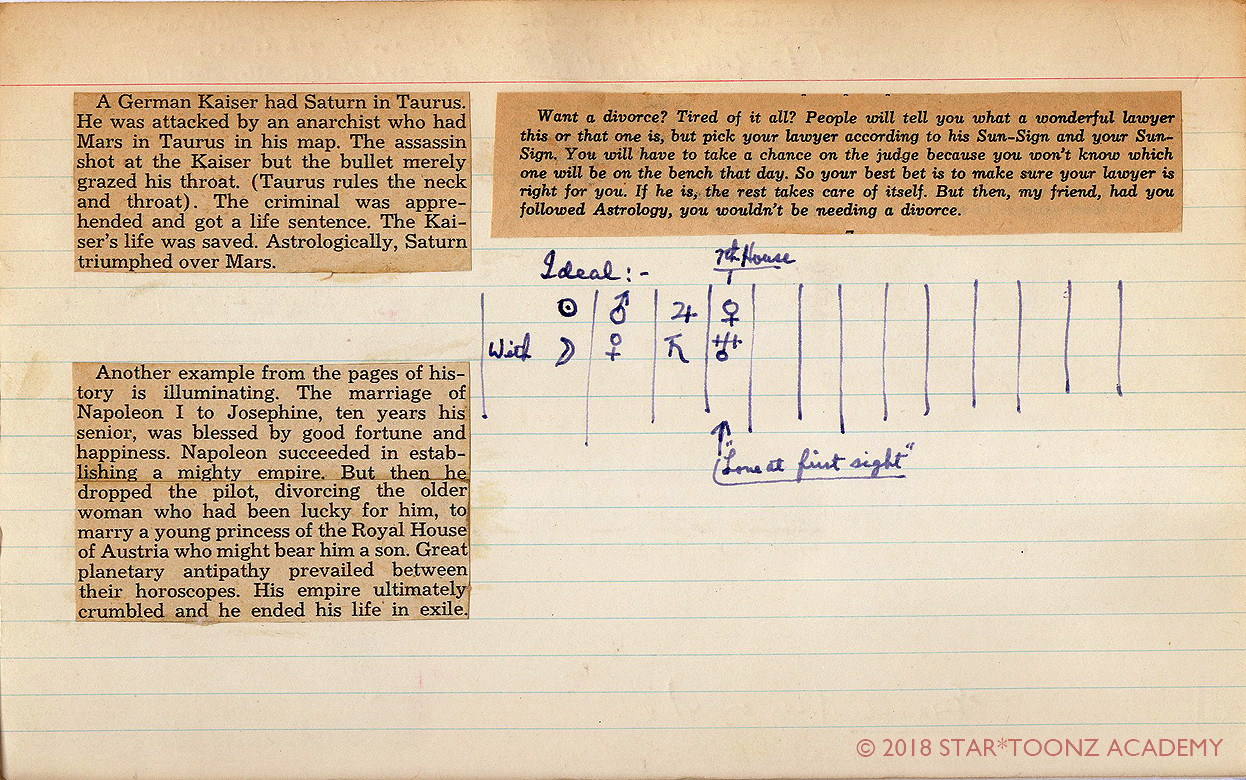 A German Kaiser had Saturn in Taurus.
He was attacked by an anarchist who had
Mars in Taurus in his map. The assassin
shot at the Kaiser but the bullet merely
grazed his throat. (Taurus rules the neck
and throat). The criminal was appre-
hended and got a life sentence. The Kai-
ser's life was saved. Astrologically, Saturn
triumphed over Mars.
Another example from the pages of his-
tory is illuminating. The marriage of
Napoleon I to Josephine, ten years his
senior, was blessed by good fortune and
happiness. Napoleon succeeded in estab-
lishing a mighty empire. But then he
dropped the pilot, divorcing the older
woman who had been lucky for him, to
marry a young princess of the Royal House
of Austria who might bear him a son. Great
planetary antipathy prevailed between
their horoscopes. His empire ultimately
crumbled and he ended his life in exile.
Want a divorce? Tired of it all? People will tell you what a wonderful lawyer
this or that one is, but pick your lawyer according to his Sun-Sign and your Sun-
Sign. You will have to take a chance on the judge because you won't know which
one will be on the bench that day. So your best bet is to make sure your lawyer is
right for you. If he is, the rest takes care of itself. But then, my friend, had you
followed Astrology, you wouldn't be needing a divorce.
7th House
Ideal:-
☉ ♂ ♃ ♀
With ☽ ♀ ♄ ♅
"Love at first sight"
© 2018 STAR*TOONZ ACADEMY